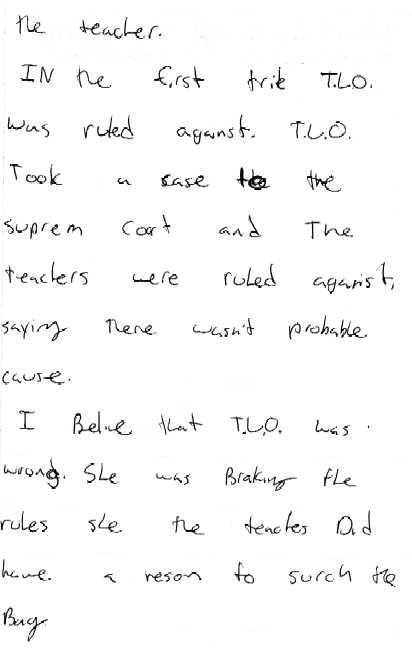 the teacher.
IN the first trile T.L.O.
was ruled aganst. T.L.O.
Took a case to the
suprem Coart and The
teachers were ruled aganist,
saying there wasn't probable
cause.
I Belive that T.L.O. was
wrong. She was Braking the
rules she the teaches Did
have. a reson to surch the
Bag.